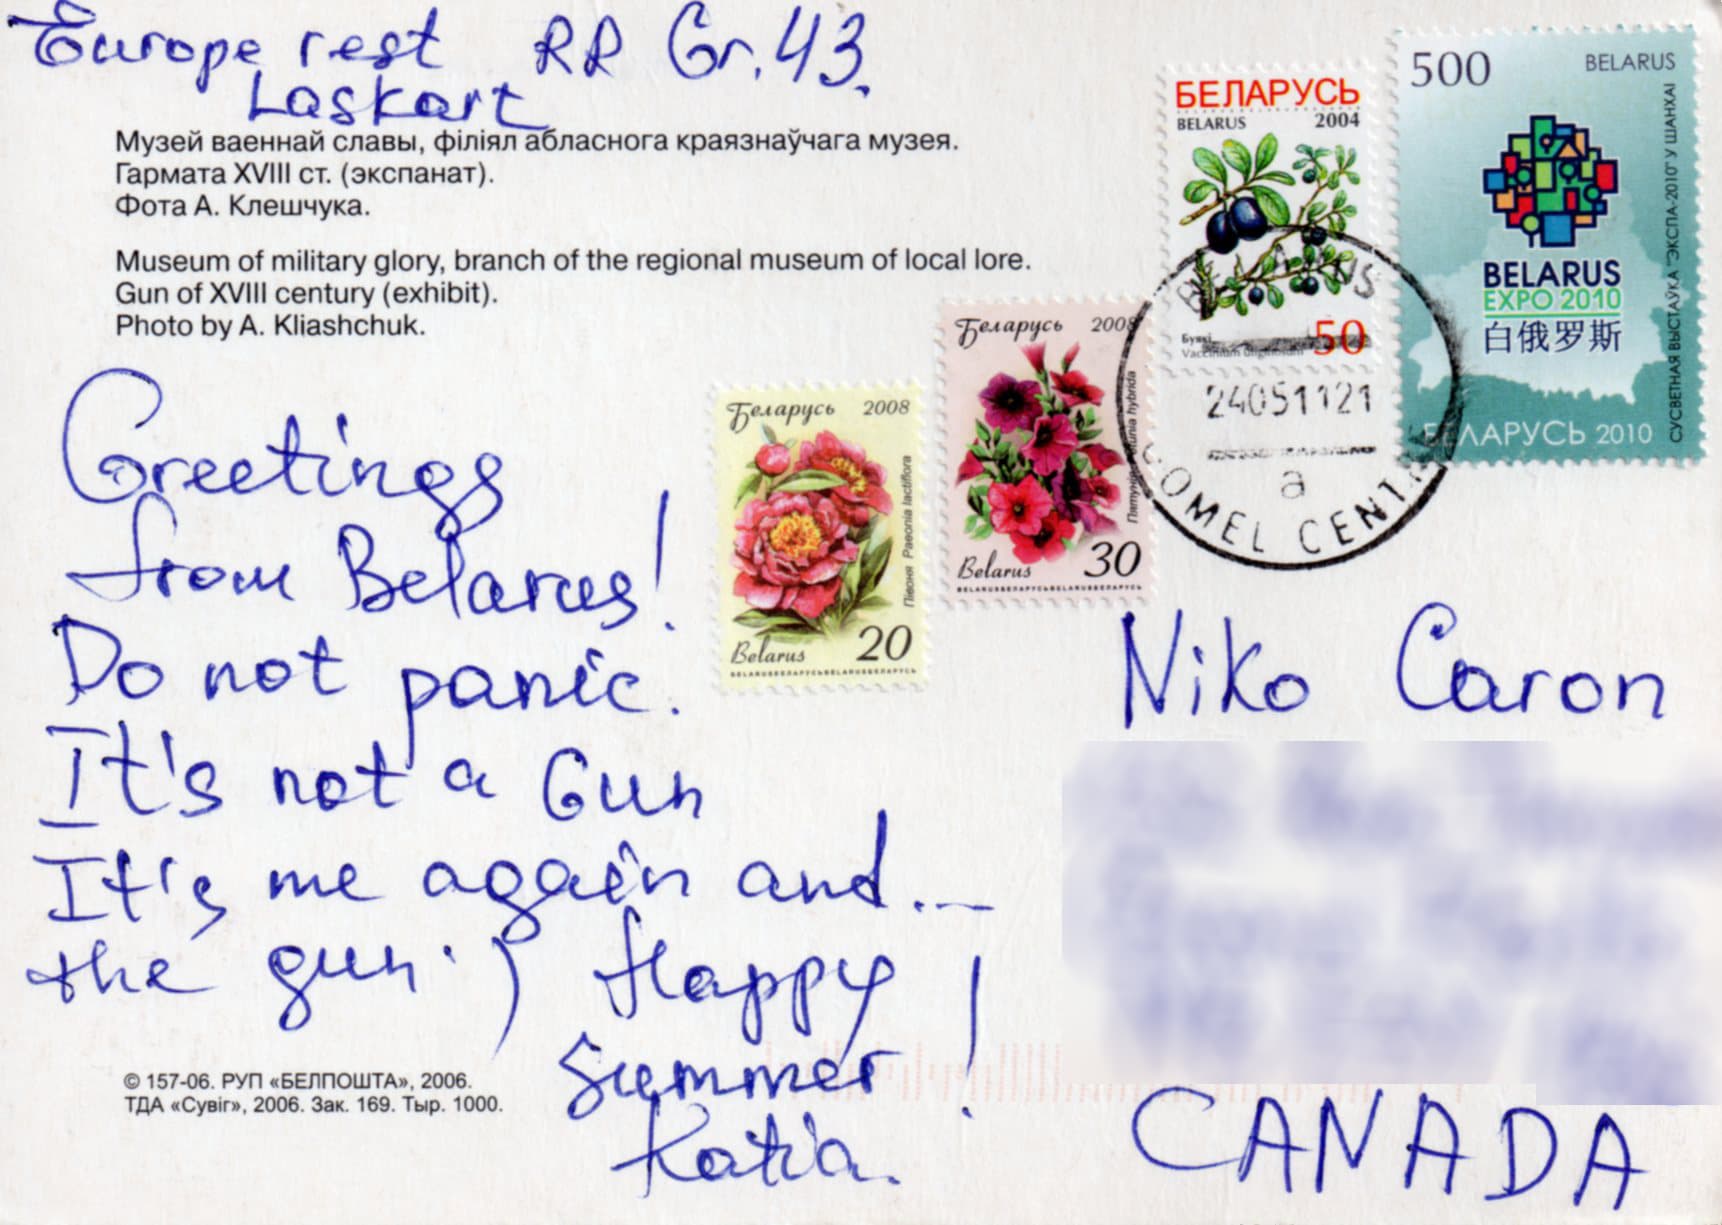 Europe rest RR Gr. 43.
Laskart
Музей ваеннай славы, філіял абласнога краязнаўчага музея.
Гармата XVIII ст. (экспанат).
Фота А. Клешчука.
Museum of military glory, branch of the regional museum of local lore.
Gun of XVIII century (exhibit).
Photo by A. Kliashchuk.
Greetings
from Belarus!
Do not panic.
It's not a Gun
It's me again and...
the gun :) Happy
Summer!
Katia.
© 157-06. РУП «БЕЛПОШТА», 2006.
ТДА «Сувіг», 2006. Зак. 169. Тыр. 1000.
Беларусь 2008
Півоня Paeonia lactiflora
Belarus 20
BELARUSБЕЛАРУСЬBELARUSБЕЛАРУСЬ
Беларусь 2008
Петунія hybrida
Belarus 30
BELARUSБЕЛАРУСЬBELARUSБЕЛАРУСЬ
БЕЛАРУСЬ
BELARUS 2004
Буякі
Vaccinium uliginosum 50
500 BELARUS
BELARUS
EXPO 2010
白俄罗斯
СУСВЕТНАЯ ВЫСТАЎКА "ЭКСПА-2010" У ШАНХАІ
БЕЛАРУСЬ 2010
BELARUS
24051121
a
GOMEL CENTR
Niko Caron
CANADA